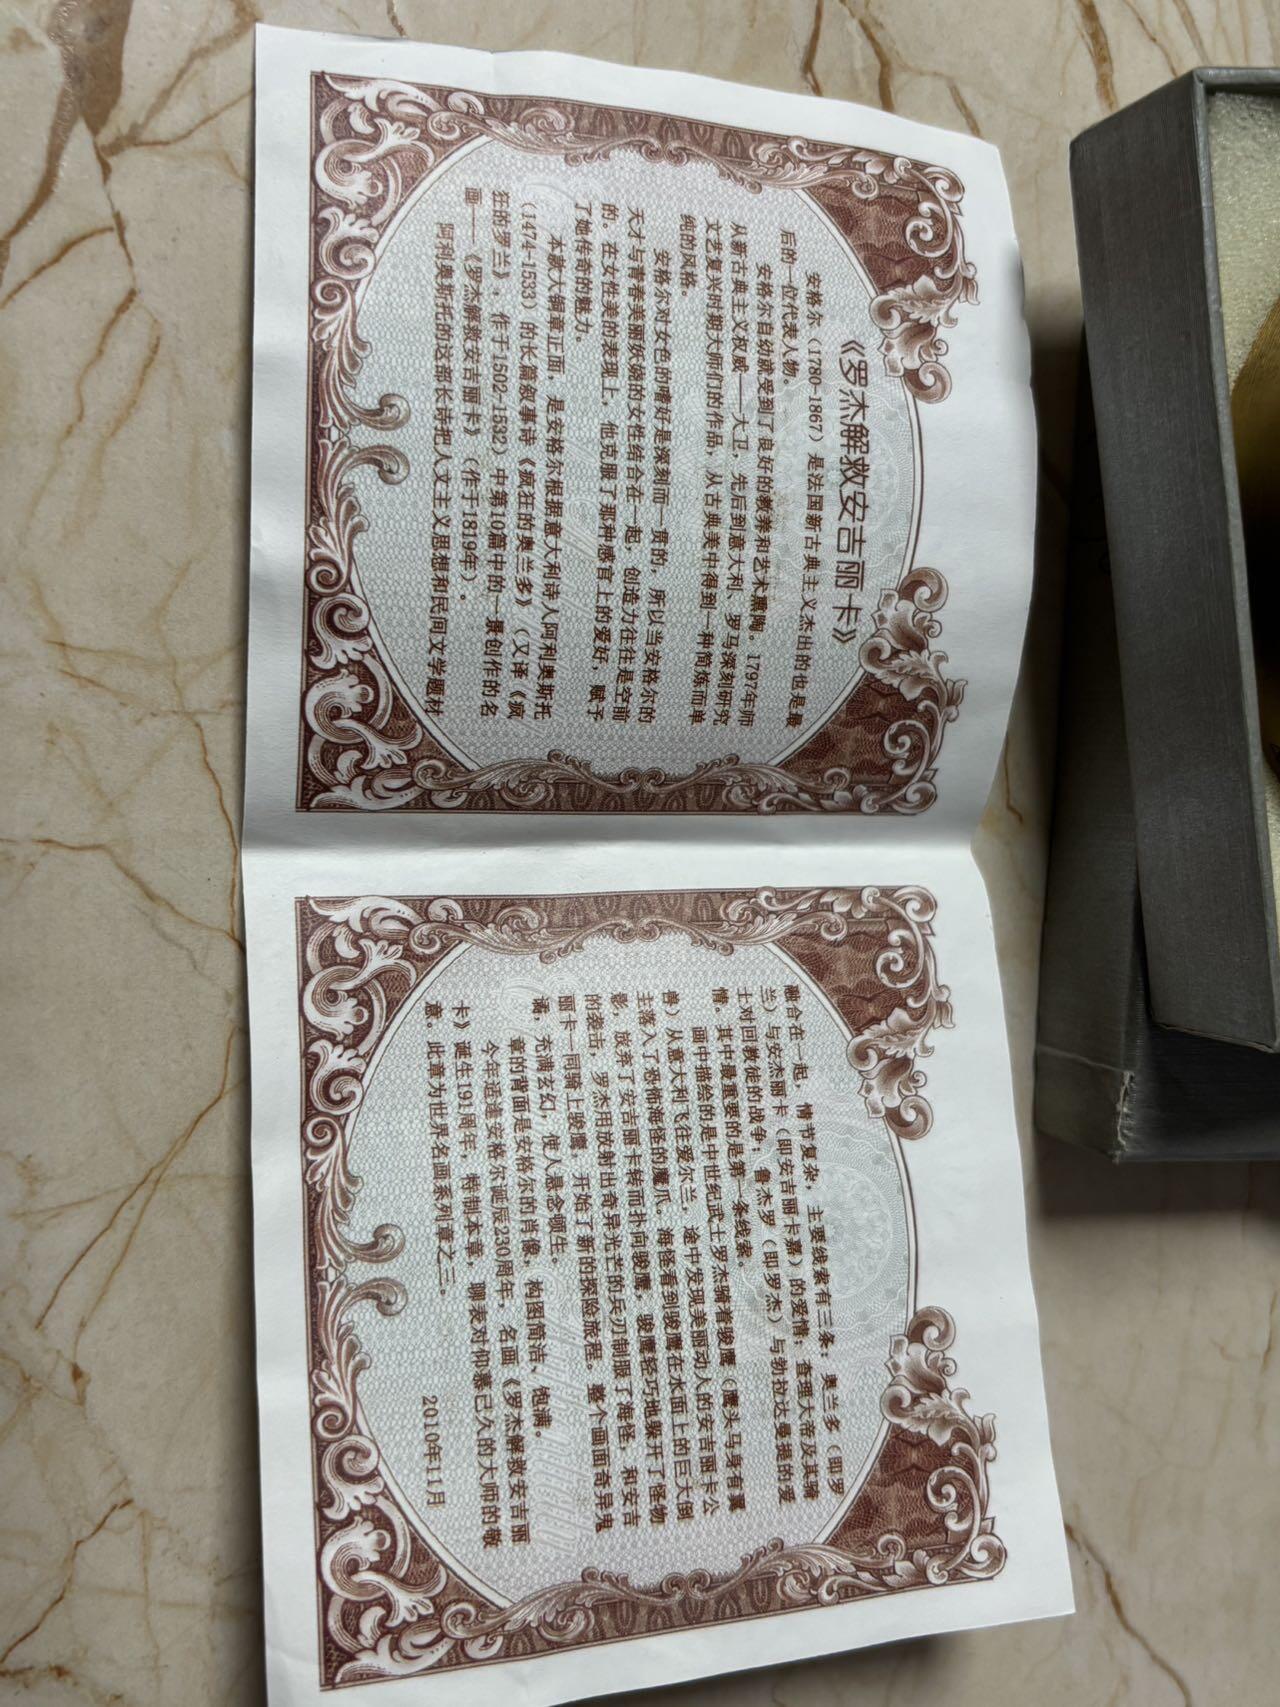 《罗杰解救安吉丽卡》
安格尔（1780-1867）是法国新古典主义杰出的也是最
后的一位代表人物。
安格尔自幼就受到了良好的教养和艺术熏陶。1797年师
从新古典主义权威——大卫，先后到意大利、罗马深刻研究
文艺复兴时期大师们的作品，从古典美中得到一种简炼而单
纯的风格。
安格尔对女色的嗜好是深刻而一贯的，所以当安格尔的
天才与青春美丽妖娆的女性结合在一起，创造力往往是空前
的。在女性美的表现上，他克服了那种感官上的爱好，赋予
了她传奇的魅力。
本款大铜章正面，是安格尔根据意大利诗人阿利奥斯托
（1474-1533）的长篇叙事诗《疯狂的奥兰多》（又译《疯
狂的罗兰》，作于1502-1532）中第10篇中的一景创作的名
画——《罗杰解救安吉丽卡》（作于1819年）。
阿利奥斯托的这部长诗把人文主义思想和民间文学题材
融合在一起，情节复杂，主要线索有三条：奥兰多（即罗
兰）与安杰丽卡（即安吉丽卡嘉）的爱情；查理大帝及其骑
士对回教徒的战争；鲁杰罗（即罗杰）与勃拉达曼提的爱
情。其中最重要的是第一条线索。
画中描绘的是中世纪武士罗杰骑着骏鹰（鹰头马身有翼
兽）从意大利飞往爱尔兰，途中发现美丽动人的安吉丽卡公
主落入了恐怖海怪的魔爪。海怪看到骏鹰在水面上的巨大倒
影，放弃了安吉丽卡转而扑向骏鹰，骏鹰轻巧地躲开了怪物
的袭击，罗杰用放射出奇异光芒的兵刃制服了海怪，和安吉
丽卡一同骑上骏鹰，开始了新的探险旅程。整个画面奇异鬼
谲，充满玄幻，使人悬念顿生。
章的背面是安格尔的肖像，构图简洁、饱满。
今年适逢安格尔诞辰230周年，名画《罗杰解救安吉丽
卡》诞生191周年，特制本章，聊表对仰慕已久的大师的敬
意。此章为世界名画系列章之三。
2010年11月